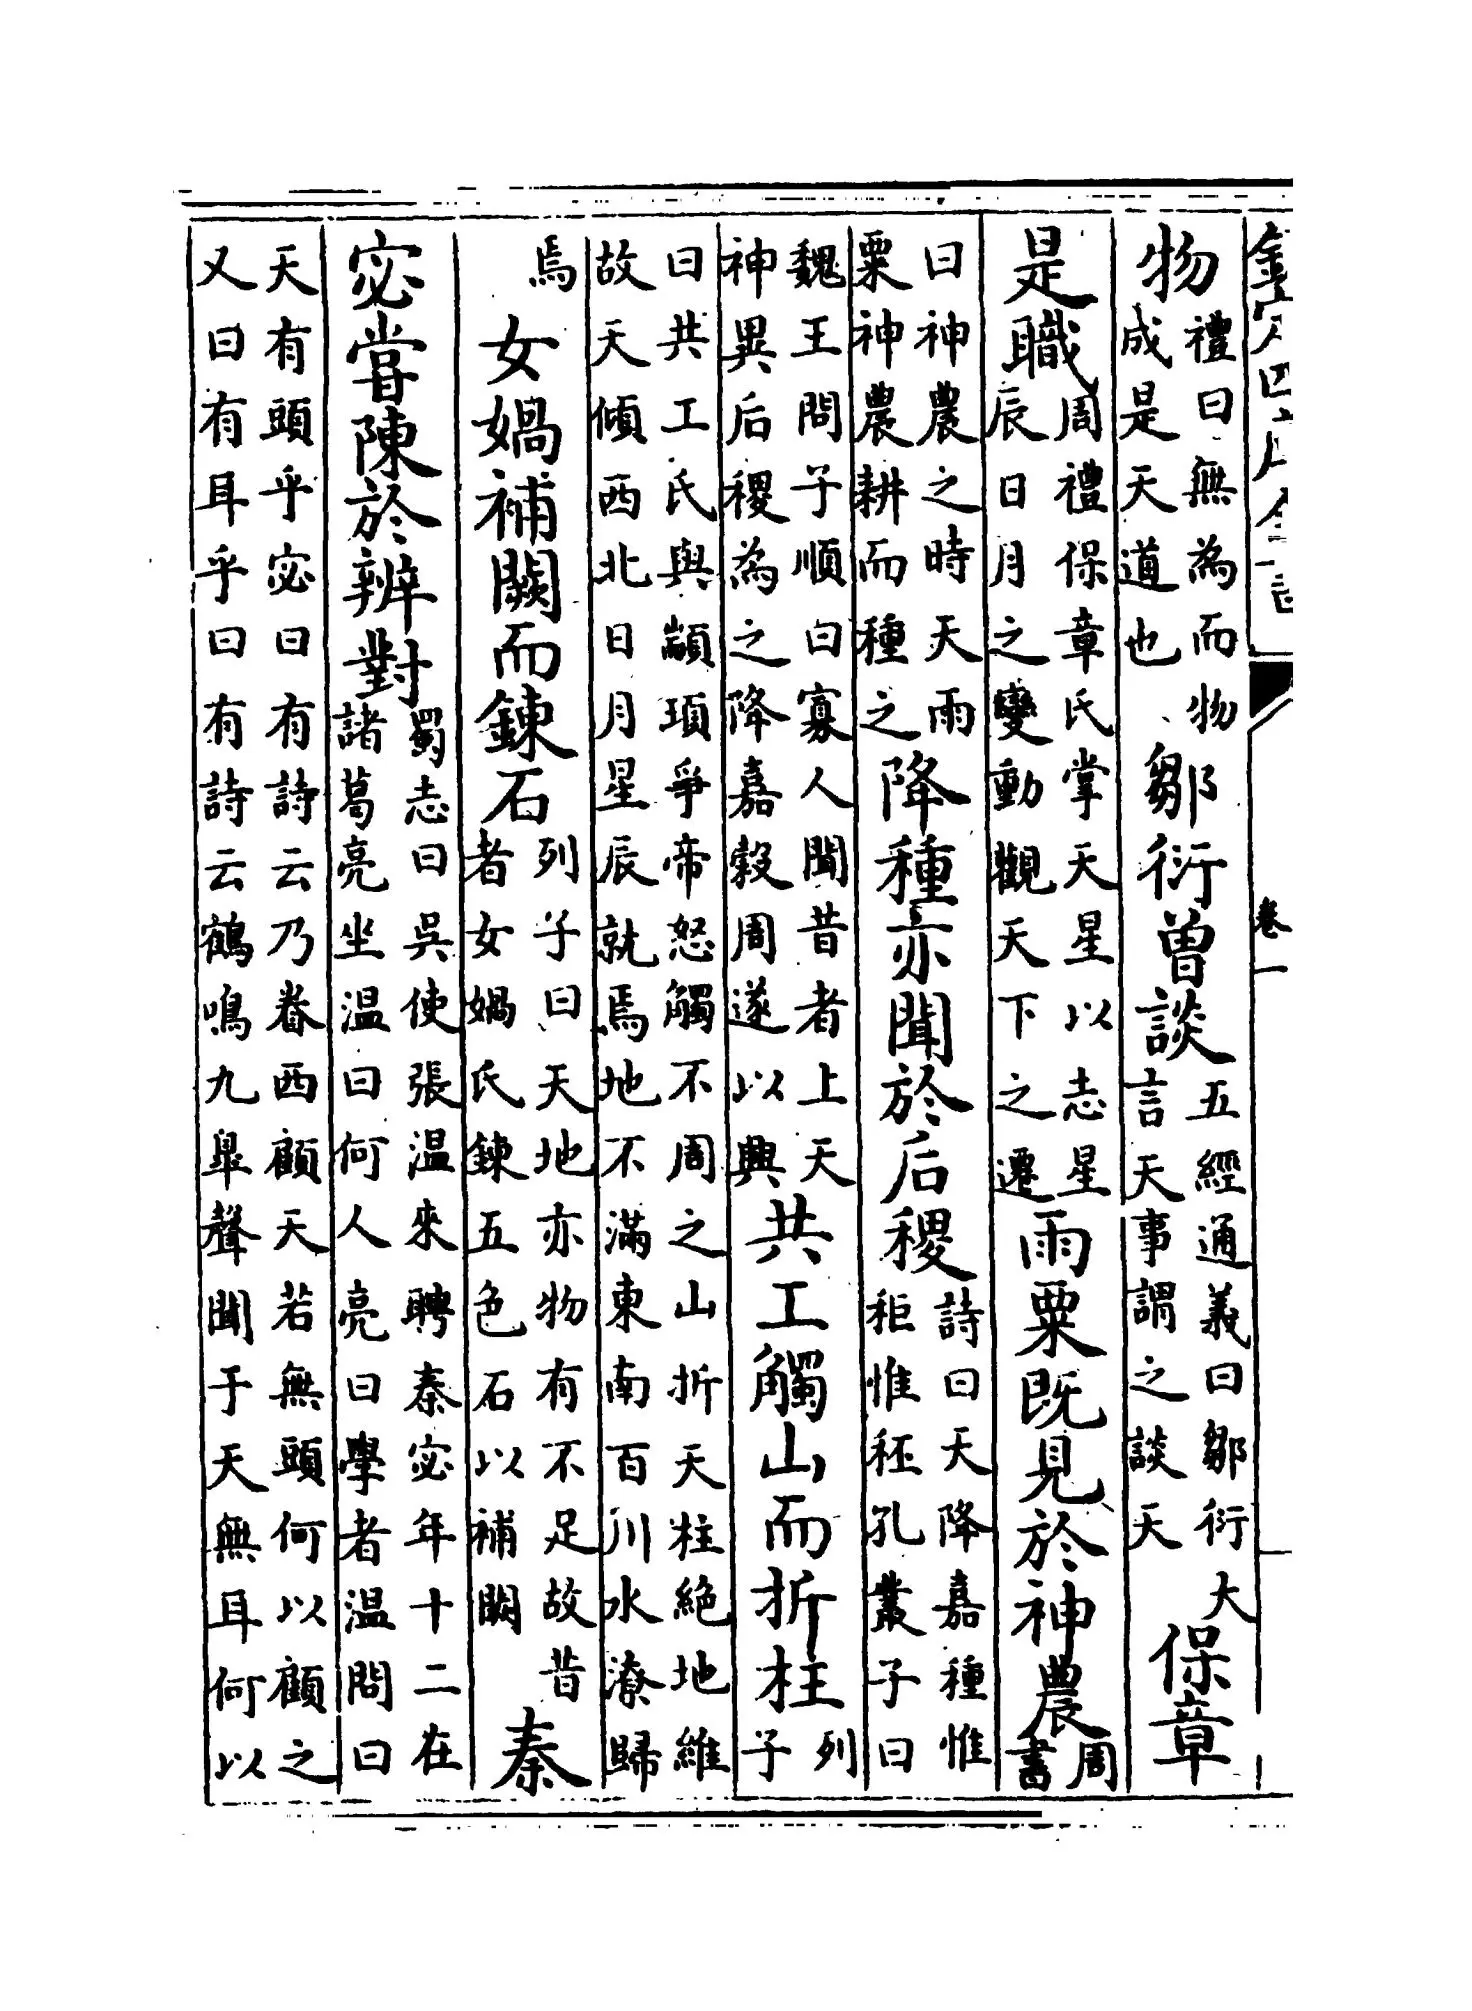 欽定四庫全書
卷一
物禮曰無為而物成是天道也鄒衍曽談五經通義曰鄒衍大言天事謂之談天保章
是職周禮保章氏掌天星以志星辰日月之變動觀天下之遷雨粟既見於神農周書
曰神農之時天雨粟神農耕而種之降種亦聞於后稷詩曰天降嘉種惟秬惟秠孔叢子曰
魏王問子順曰寡人聞昔者上天神異后稷為之降嘉穀周遂以興共工觸山而折柱列子
曰共工氏與顓頊爭帝怒觸不周之山折天柱絶地維故天傾西北日月星辰就焉地不滿東南百川水潦歸
焉女媧補闕而鍊石列子曰天地亦物有不足故昔者女媧氏鍊五色石以補闕秦
宓甞陳於辨對蜀志曰吳使張温來聘秦宓年十二在諸葛亮坐温曰何人亮曰學者温問曰
天有頭乎宓曰有詩云乃眷西顧天若無頭何以顧之又曰有耳乎曰有詩云鶴鳴九臯聲聞于天無耳何以